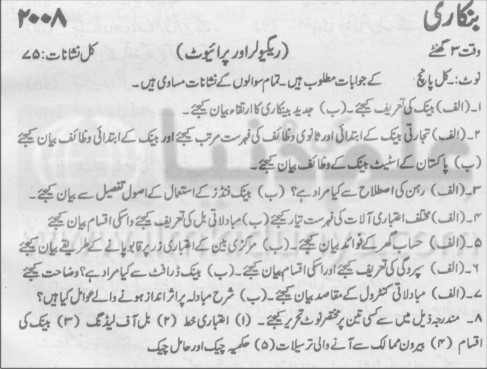 بنکاری ۲۰۰۸
وقت ۳ گھنٹے (ریگولر اور پرائیوٹ) کل نشانات : ۷۵
نوٹ : کل پانچ کے جوابات مطلوب ہیں۔ تمام سوالوں کے نشانات مساوی ہیں۔
۱۔ (الف) بینک کی تعریف کیجئے۔ (ب) جدید بینکاری کا ارتقاء بیان کیجئے
۲۔ (الف) تجارتی بینک کے ابتدائی اور ثانوی وظائف کی فہرست مرتب کیجئے اور بینک کے ابتدائی وظائف بیان کیجئے
(ب) پاکستان کے اسٹیٹ بینک کے وظائف بیان کیجئے۔
۳۔ (الف) رہن کی اصطلاح سے کیا مراد ہے؟ (ب) بینک فنڈز کے استعمال کے اصول تفصیل سے بیان کیجئے
۴۔ (الف) مختلف اعتباری آلات کی فہرست تیار کیجئے (ب) مبادلاتی بل کی تعریف کیجئے و اسکی اقسام بیان کیجئے
۵۔ (الف) حساب گھر کے فوائد بیان کیجئے۔ (ب) مرکزی بینک کے اعتباری زر پر قابو پانے کے طریقے بیان کیجئے
۶۔ (الف) سپردگی کی تعریف کیجئے اور اسکی اقسام بیان کیجئے۔ (ب) بینک ڈرافٹ سے کیا مراد ہے؟ وضاحت کیجئے
۷۔ (الف) مبادلاتی کنٹرول کے مقاصد بیان کیجئے۔ (ب) شرح مبادلہ پر اثر انداز ہونے والے عوامل کیا ہیں؟
۸۔ مندرجہ ذیل میں سے کسی تین پر مختصر نوٹ تحریر کیجئے۔ (۱) اعتباری خط (۲) بل آف لیڈنگ (۳) بینک کی
اقسام (۴) بیرون ممالک سے آنے والی ترسیلات (۵) حکمیہ چیک اور حامل چیک